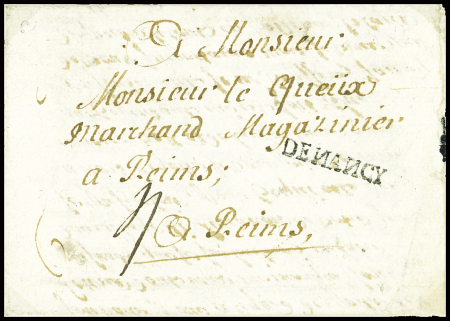 A Monsieur
Monsieur le Queüx
Marchand Magazinier
a Reims;
DENANCY
a Reims,